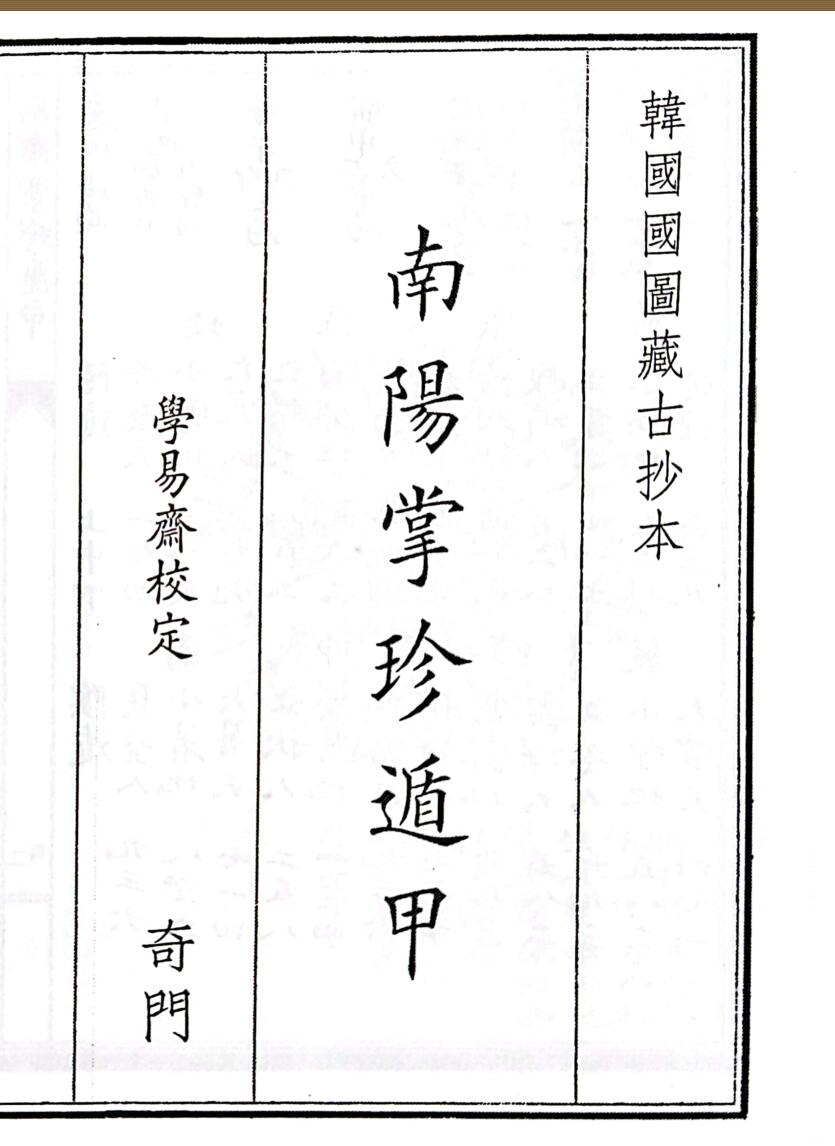 韓國國圖藏古抄本
南陽掌珍遁甲
學易齋校定 奇門